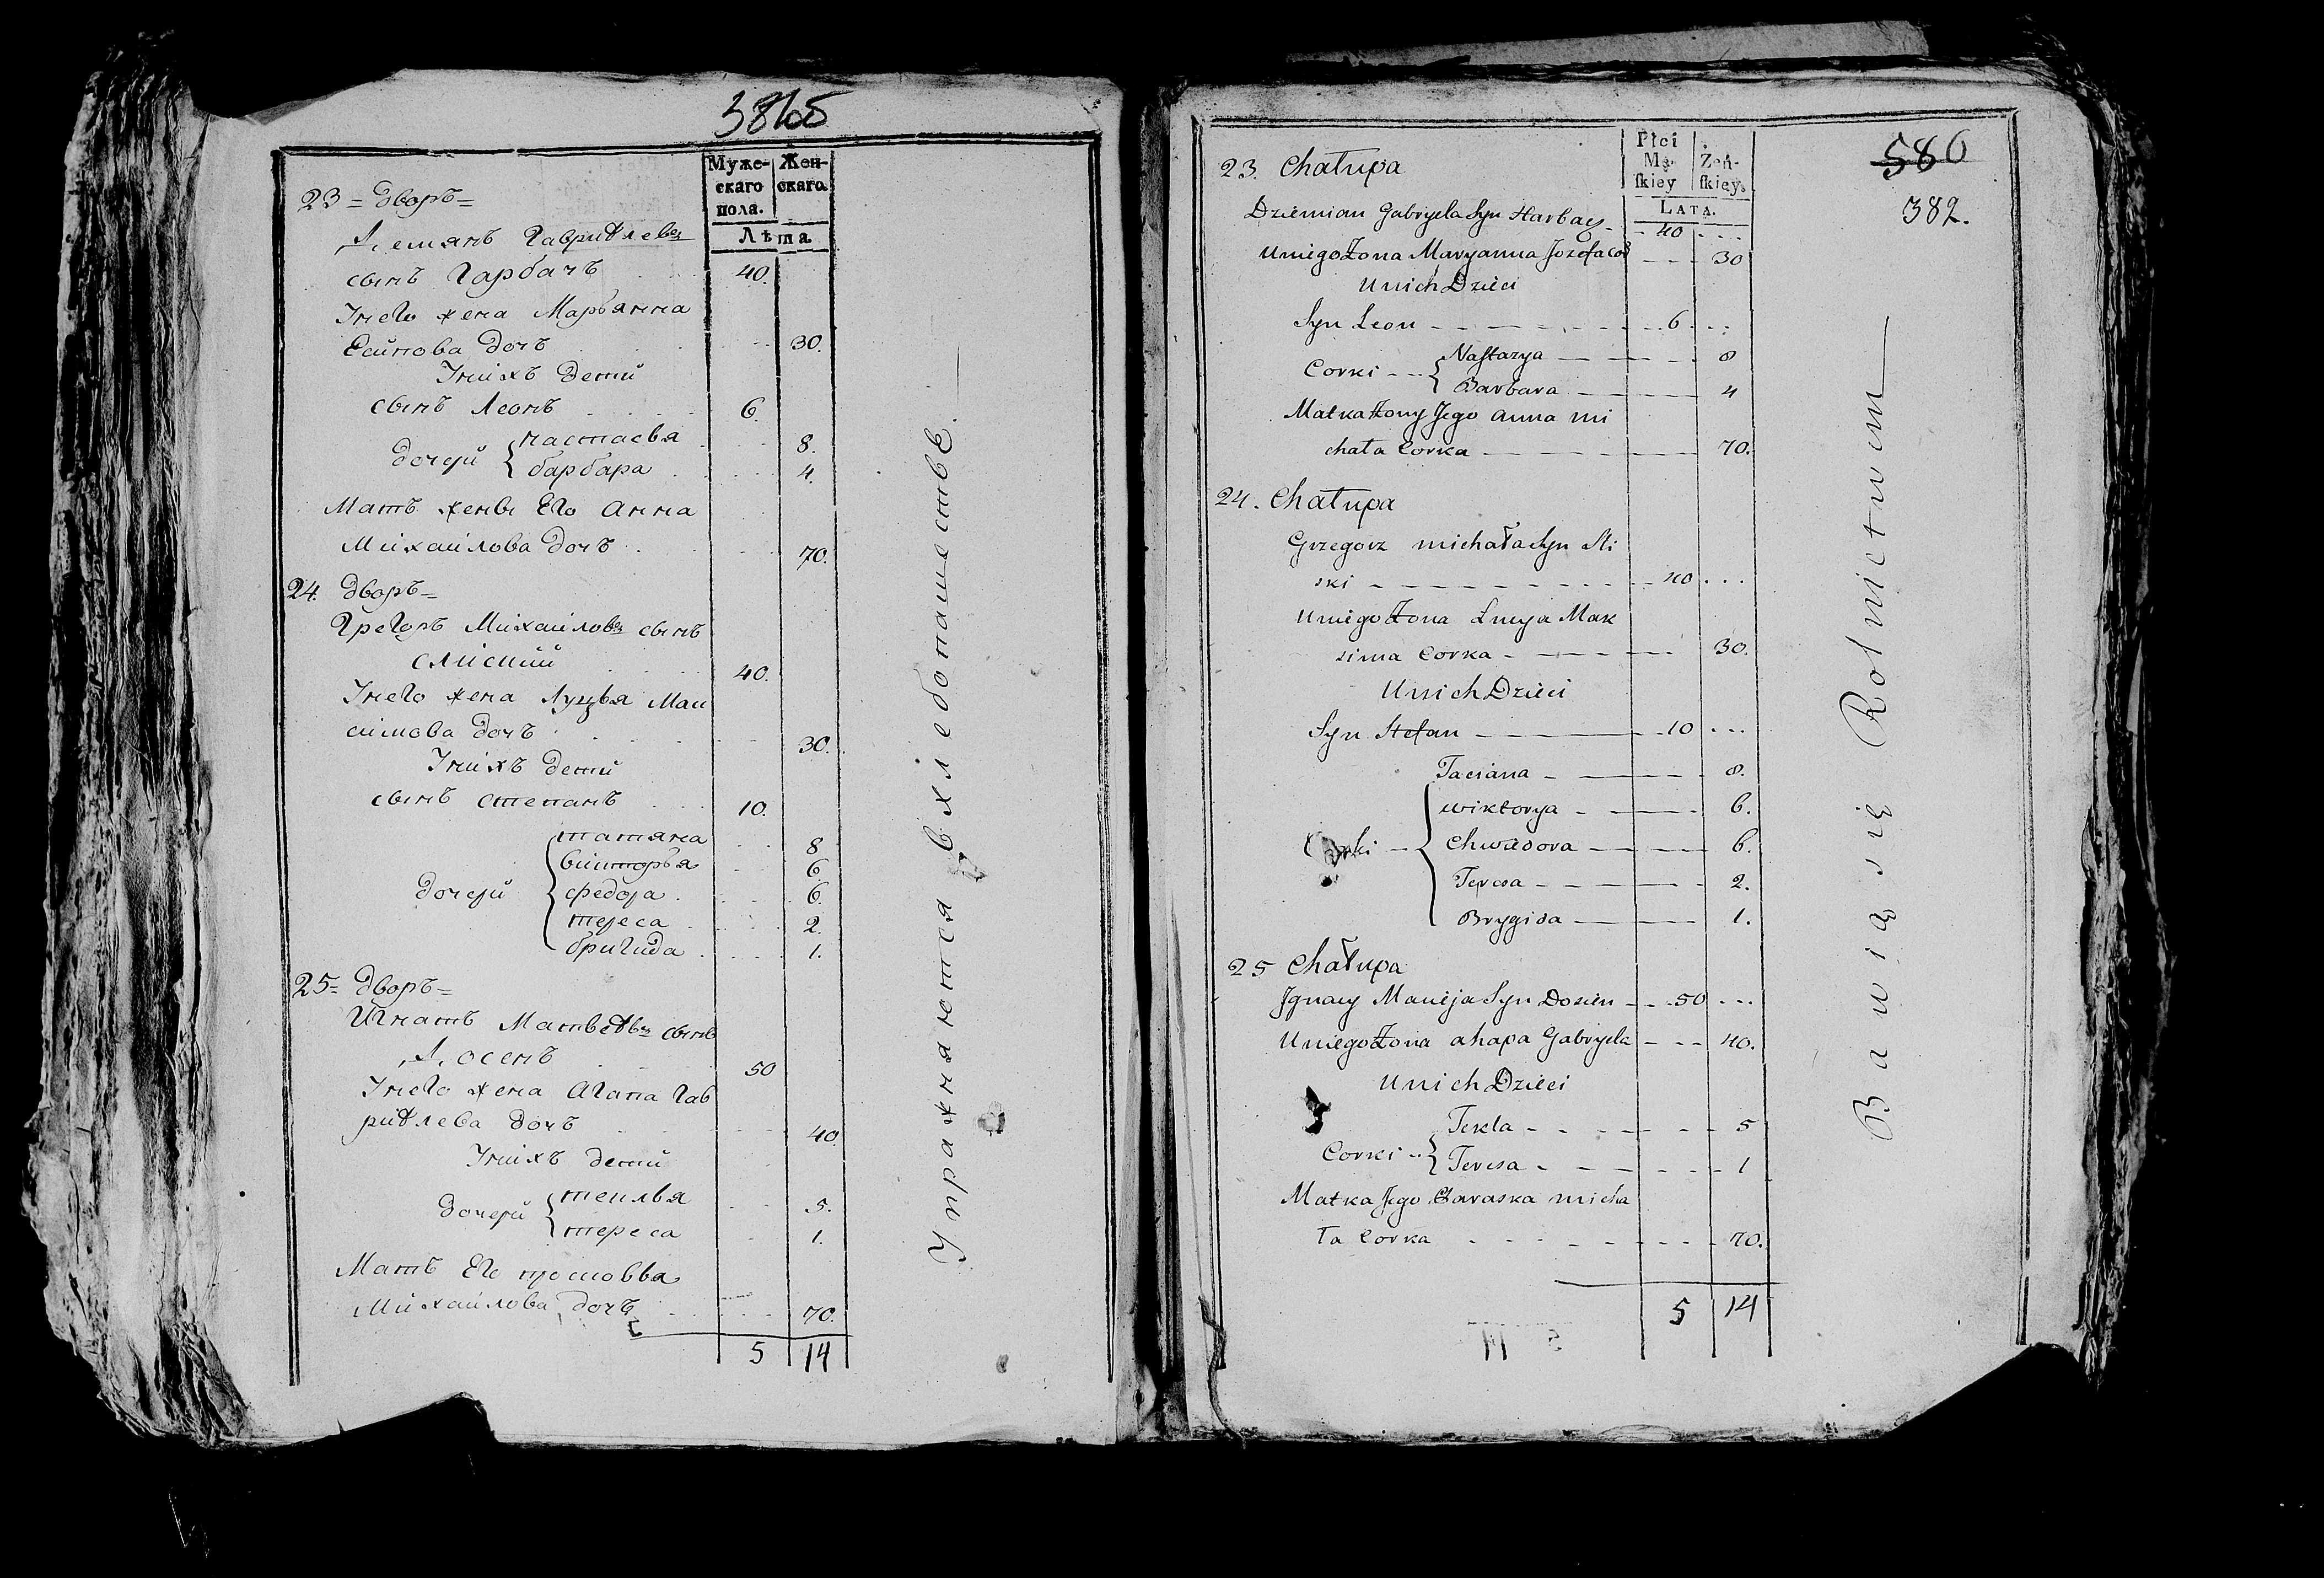 Муже-
скаго
пола.
Жен-
скаго.
Лѣта
23 = дворъ =
Демянъ Гавриѣлевъ
сынъ Гарбачъ 40.
Унего жена Марьянна
Есипова дочъ 30.
Унихъ дети
сынъ Леонъ 6.
дочери { настасья 8.
барбара 4.
Мать жены Его Анна
Михаилова дочъ 70.
24. дворъ =
Грегоръ Михаиловъ сынъ
слиский 40.
Унего жена Луцья Мак
симова дочъ 30.
Унихъ дети
сынъ степанъ 10.
татяна 8
викторья 6
дочери { федора 6.
тереса 2.
бригида 1.
25 = дворъ =
Игнатъ Матвеѣвъ сынъ
Досенъ 50
Унего жена Агапа Гав
риѣлева дочъ 40.
Унихъ дети
дочери { теклья 5.
тереса 1.
Мать Его
Михаилова дочъ 70.
5 14
Упражняются в хлебопашестве
Płci
Mę-
skiey
Żeń-
skiey.
LATA.
586
382.
23. Chałupa
Dziemian Gabryela Syn Harbacz 40 ...
Uniego Żona Maryanna Jozefa Cor 30
Unich Dzieci
Syn Leon 6 ...
Corki { Nastazya 8
Barbara 4
Matka Żony Jego Anna mi
chała Corka 70.
24. Chałupa
Grzegorz michała Syn Sli
ski 40 ...
Uniego Żona Łucya Mak
sima Corka 30.
Unich Dzieci
Syn Stefan 10 ...
Taciana 8.
wiktorya 6.
Corki { Chwiedora 6.
Teresa 2.
Brygida 1.
25 Chałupa
Jgnacy Macieja Syn Dosien 50 ...
Uniego Żona ahapa Gabryela 40.
Unich Dzieci
Tekla 5
Corki { Teresa 1
Matka Jego Paraska micha
ła Corka 70.
5 14
Bawią się Rolnictwem